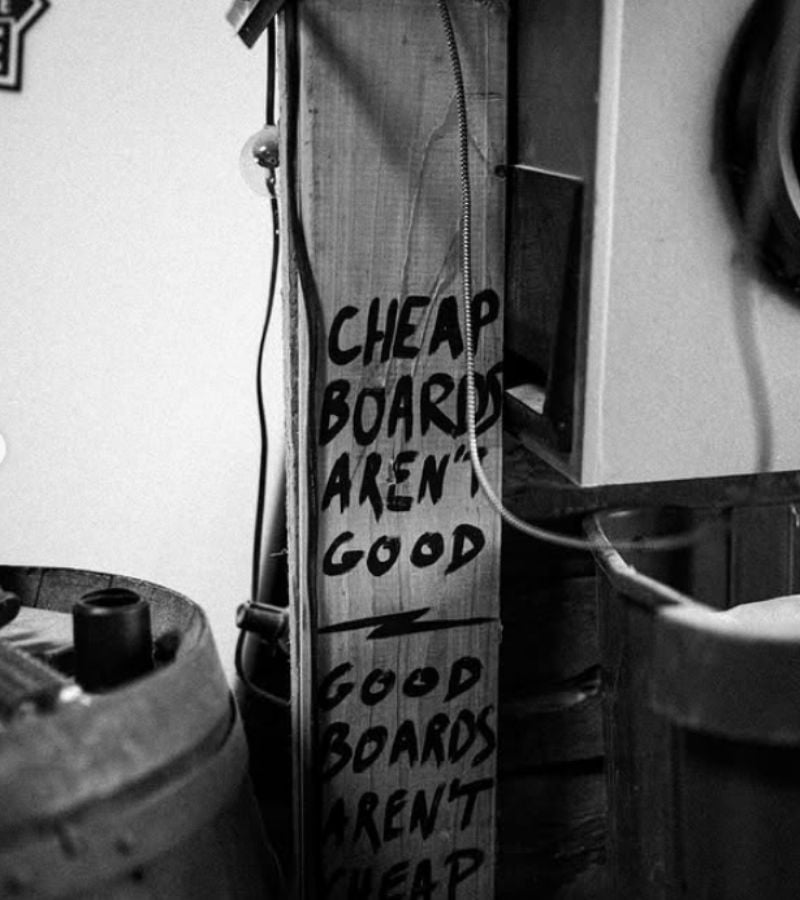 CHEAP
BOARDS
AREN'T
GOOD
GOOD
BOARDS
AREN'T
CHEAP